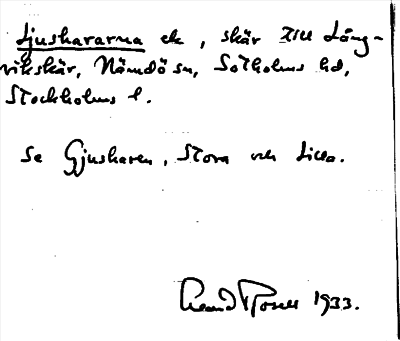 Ljushararna ek, skär till Lång-
vikskär, Nämdö sn, Sotholms hd,
Stockholms l.
Se Gjusharen, Stora och Lilla.
1933.